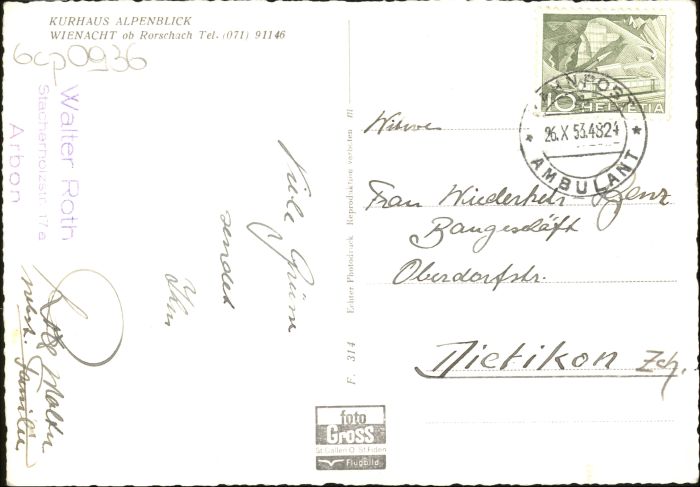 KURHAUS ALPENBLICK
WIENACHT ob Rorschach Tel. (071) 91146
6cp0936
Walter Roth
Stacherholzstr. 17a
Arbon
Viele Grüsse
sendet
Ihr
Roth Walter
nebst. Familie
F. 314 Echter Photodruck Reproduction verboten m
foto
Gross
St.Gallen O. St.Fiden
Flugbild
10 HELVETIA
BAHNPOST
26.X 53.4824
* AMBULANT *
Witwe
Frau Wiederkehr Benz
Baugeschäft
Oberdorfstr.
Dietikon Zch.